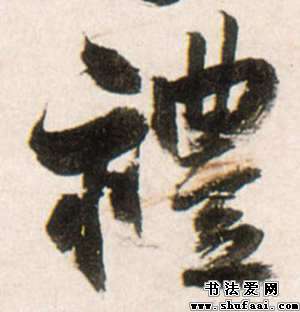 禮
书法爱网
www.shufaai.com